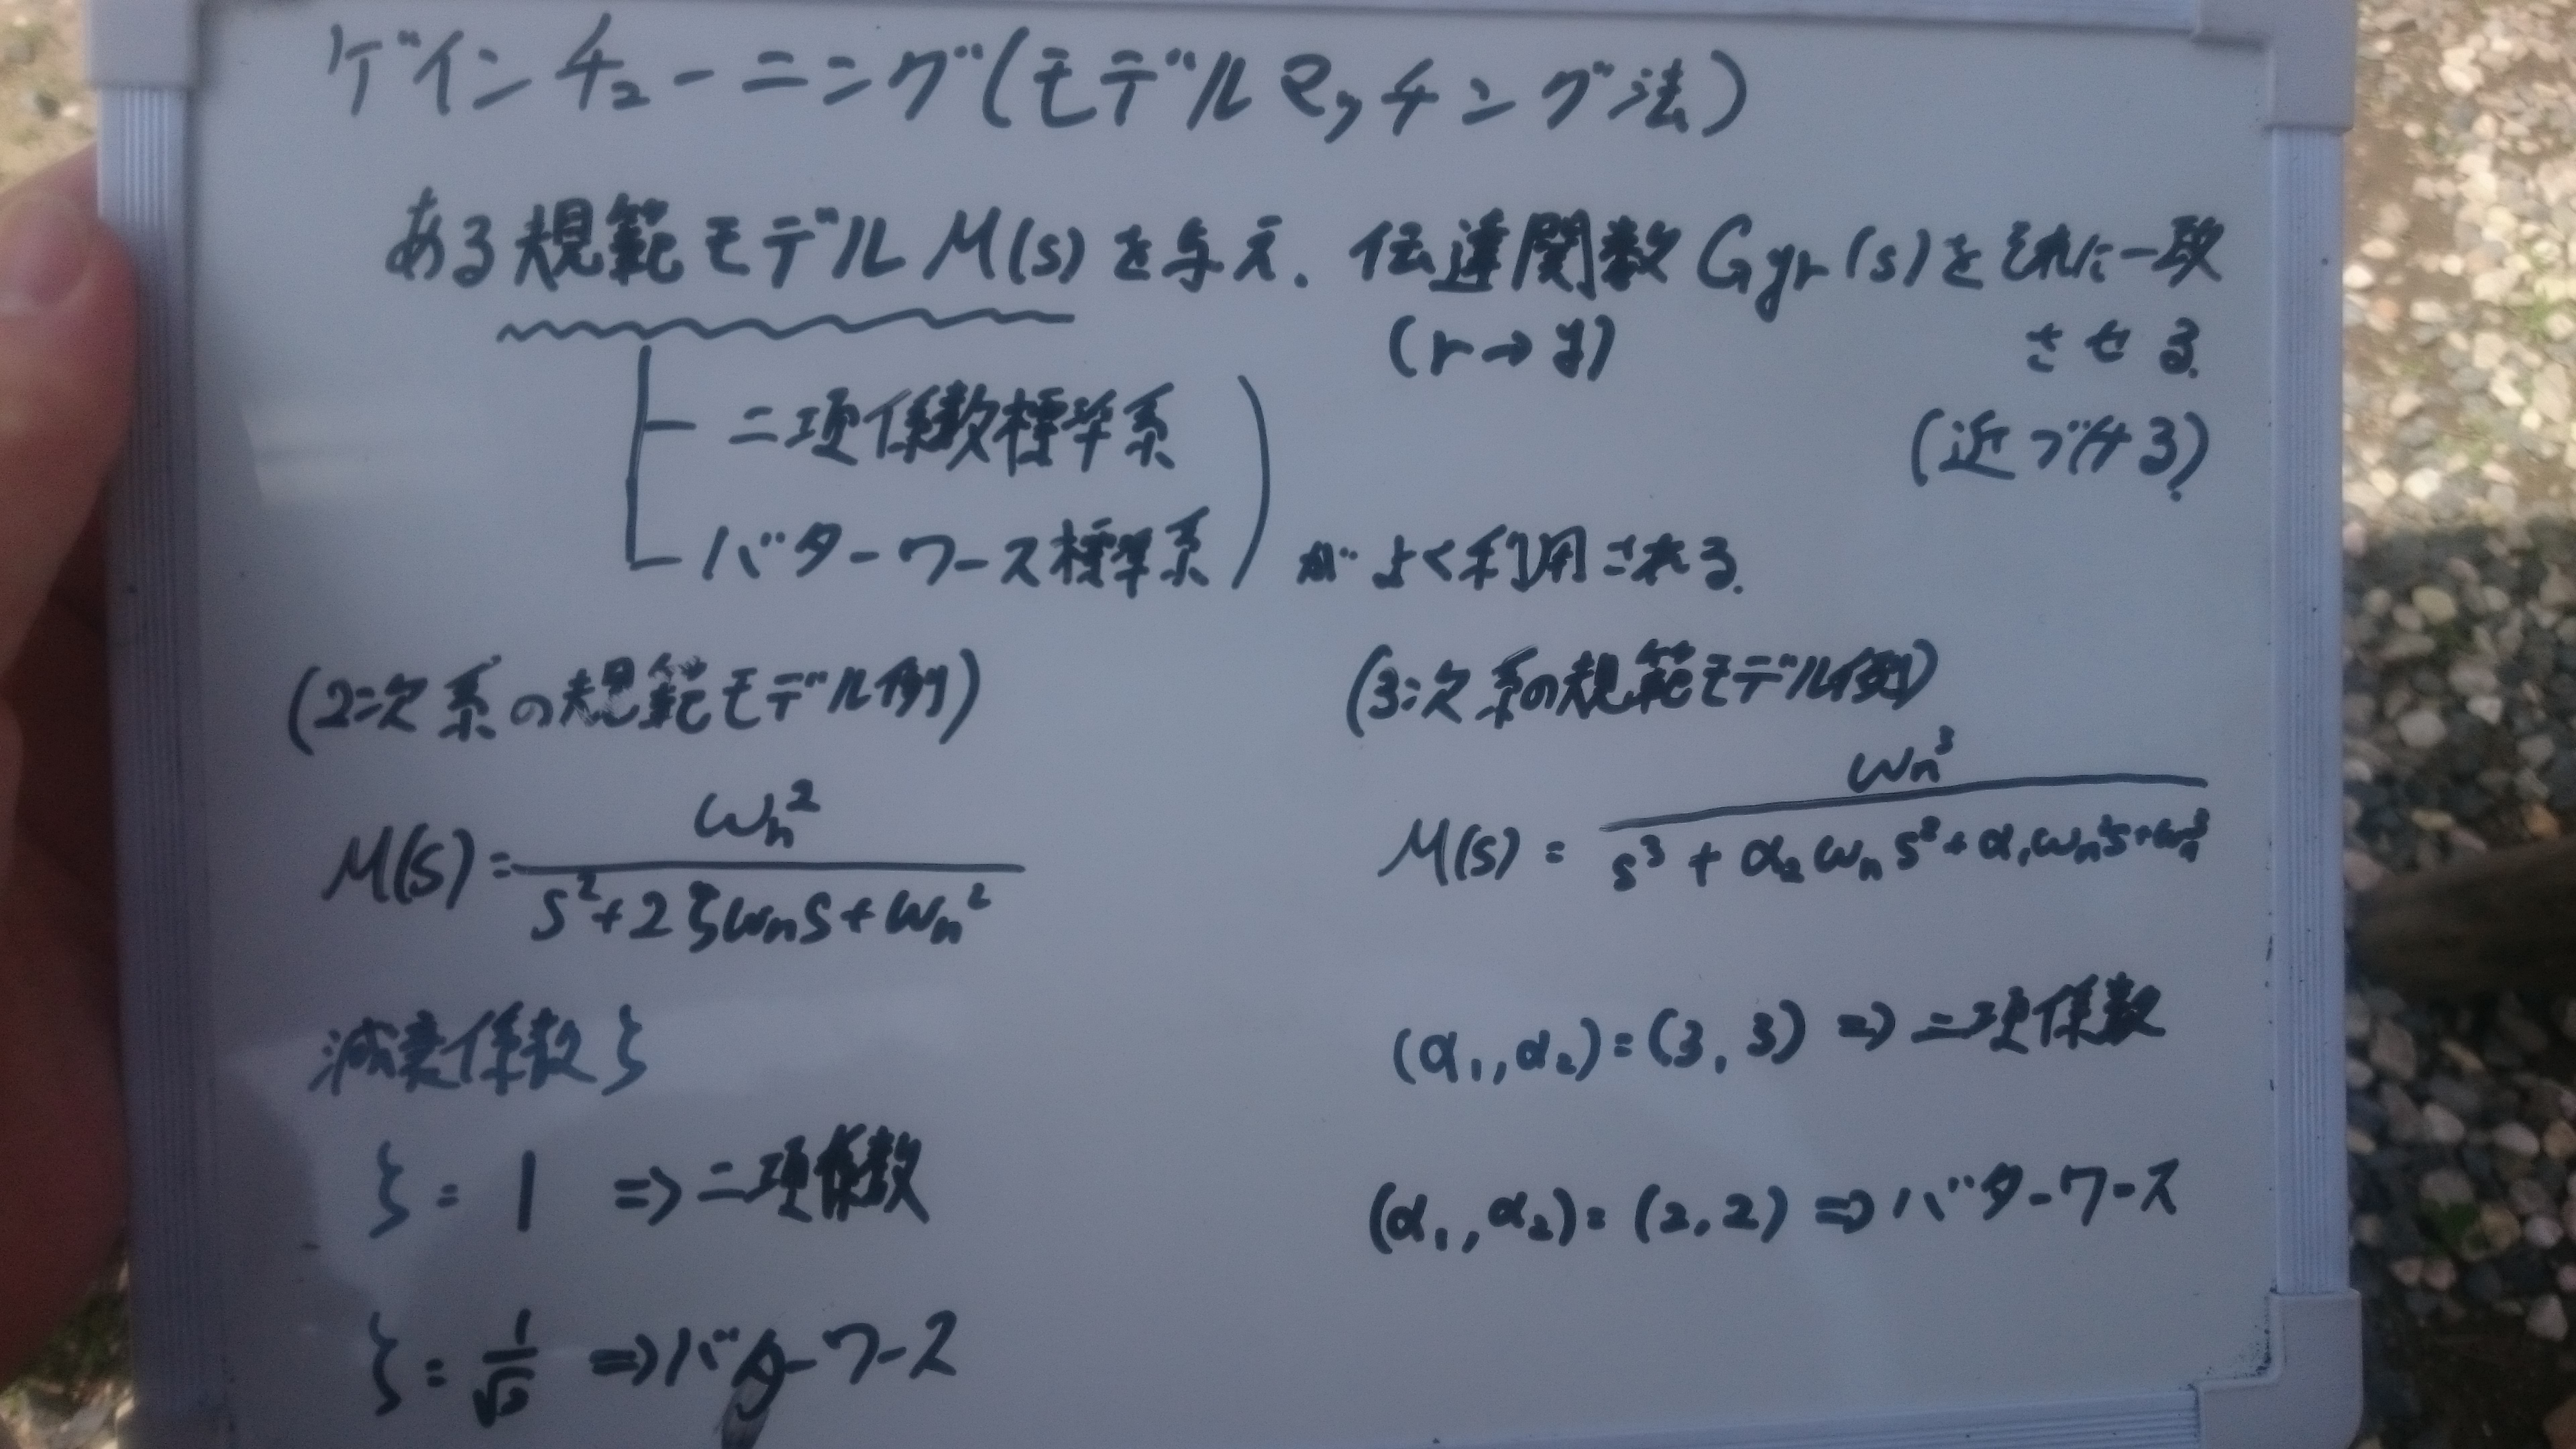 ゲインチューニング(モデルマッチング法)
ある規範モデルM(s)を与え. 伝達関数Gyr(s)をそれに一致
(r→y)
させる.
二項係数標準系
(近づける)
バターワース標準系
がよく利用される.
(2次系の規範モデル例)
M(s)=ωn²/(s²+2ζωns+ωn²)
減衰係数ζ
ζ=1 ⇒二項係数
ζ=1/√2 ⇒バターワース
(3次系の規範モデル例)
M(s)=ωn³/(s³+α₂ωns²+α₁ωn²s+ωn³)
(α₁,α₂)=(3,3) ⇒二項係数
(α₁,α₂)=(2,2) ⇒バターワース